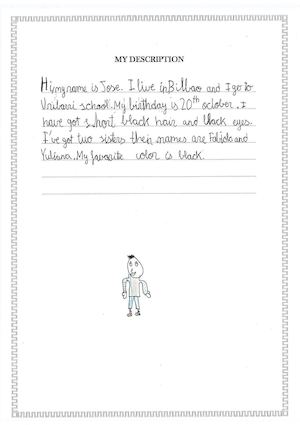 MY DESCRIPTION
Hi, my name is Jose. I live in Bilbao and I go to
school. My birthday is 20th october. I
have got short black hair and black eyes.
I've got two sisters their names are Fabiola and
Yuliana. My favorite color is black.